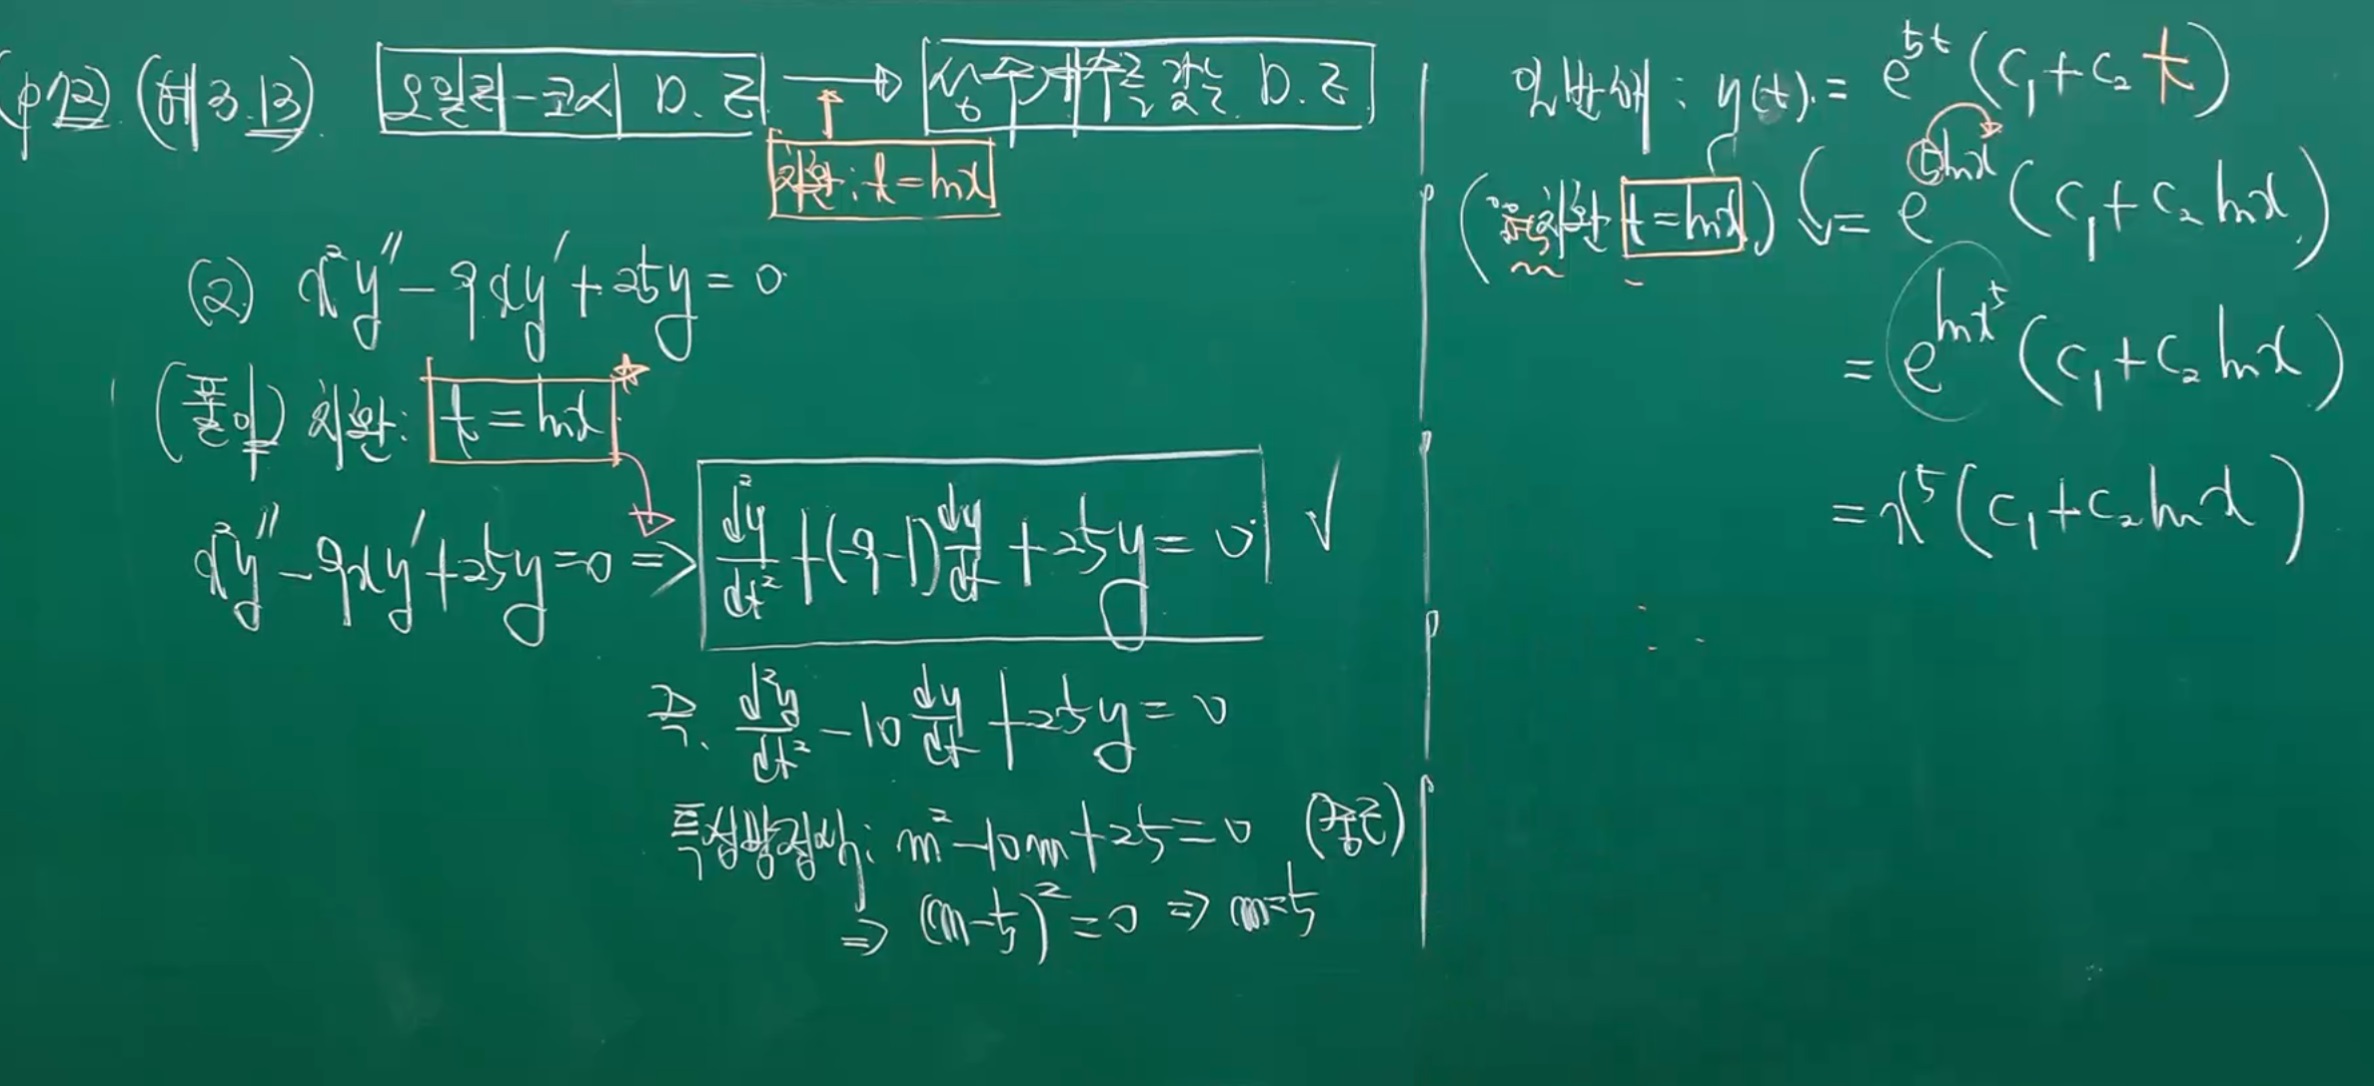 (p72) (예 3.13) 오일러-코시 D.E → 상수계수를 갖는 D.E
치환: t = lnx
(2) x²y'' - 9xy' + 25y = 0
(풀이) 치환: t = lnx
x²y'' - 9xy' + 25y = 0 ⇒ d²y/dt² + (-9-1)dy/dt + 25y = 0 ✓
즉. d²y/dt² - 10 dy/dt + 25y = 0
특성방정식: m² - 10m + 25 = 0 (중근)
⇒ (m-5)² = 0 ⇒ m=5
일반해: y(t) = e^{5t}(C₁ + C₂ t)
(역치환 t = lnx) = e^{5lnx}(C₁ + C₂ lnx)
= e^{lnx⁵}(C₁ + C₂ lnx)
= x⁵(C₁ + C₂ lnx)